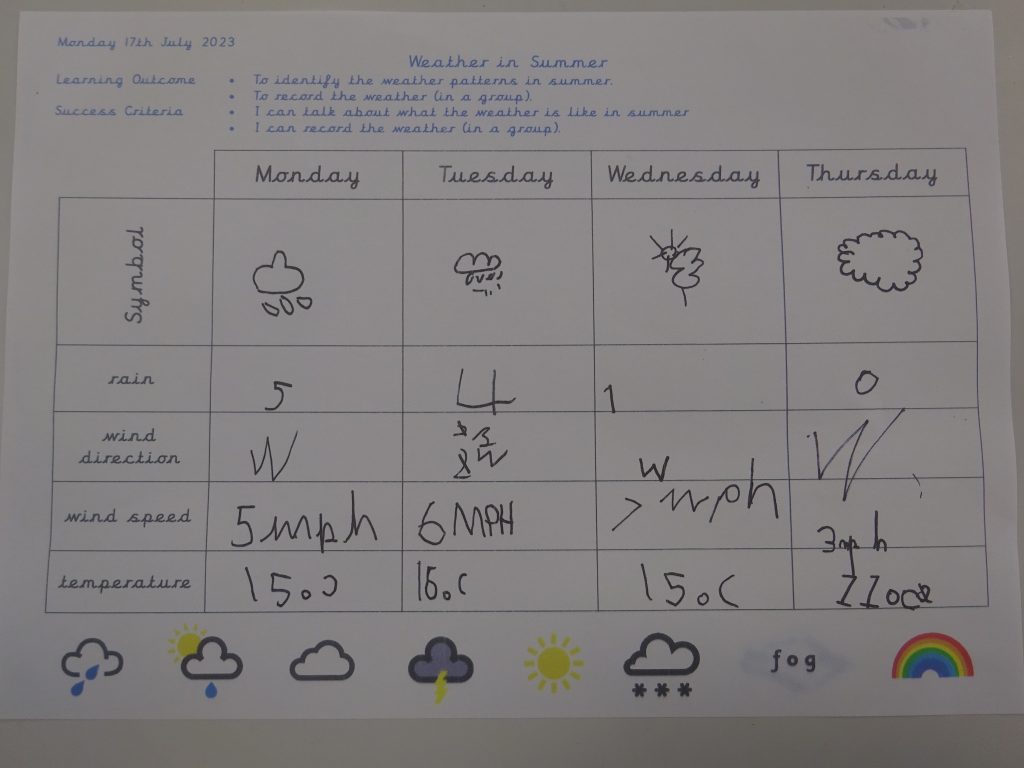 Monday 17th July 2023
Weather in Summer
Learning Outcome • To identify the weather patterns in summer.
• To record the weather (in a group).
Success Criteria • I can talk about what the weather is like in summer
• I can record the weather (in a group).
Monday Tuesday Wednesday Thursday
Symbol
rain 5 4 1 0
wind direction W W W
wind speed 5mph 6MPH mph 3mph
temperature 15 16.c 15.c 11oc
fog